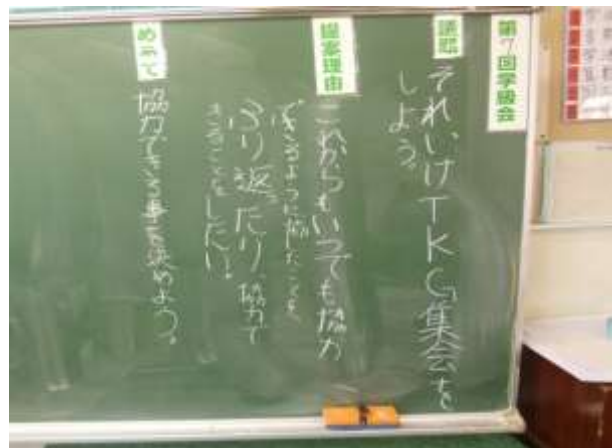 第7回学級会
議題
それいけTKG集会を
しよう。
提案理由
これからもいつでも協力
できるように協力したことを
ふり返ったり、協力で
きることをしたい！
めあて
協力できる事を決めよう。